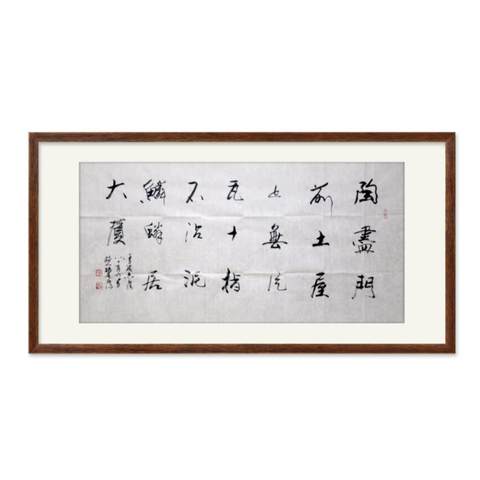 陶盡門
前土屋
上無片
瓦十指
不沾泥
鱗鱗居
大廈